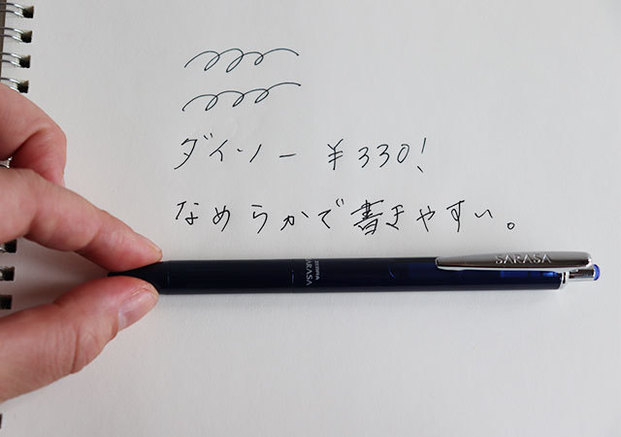 ダイソー ¥330!
なめらかで書きやすい。
SARASA
ZEBRA
SARASA